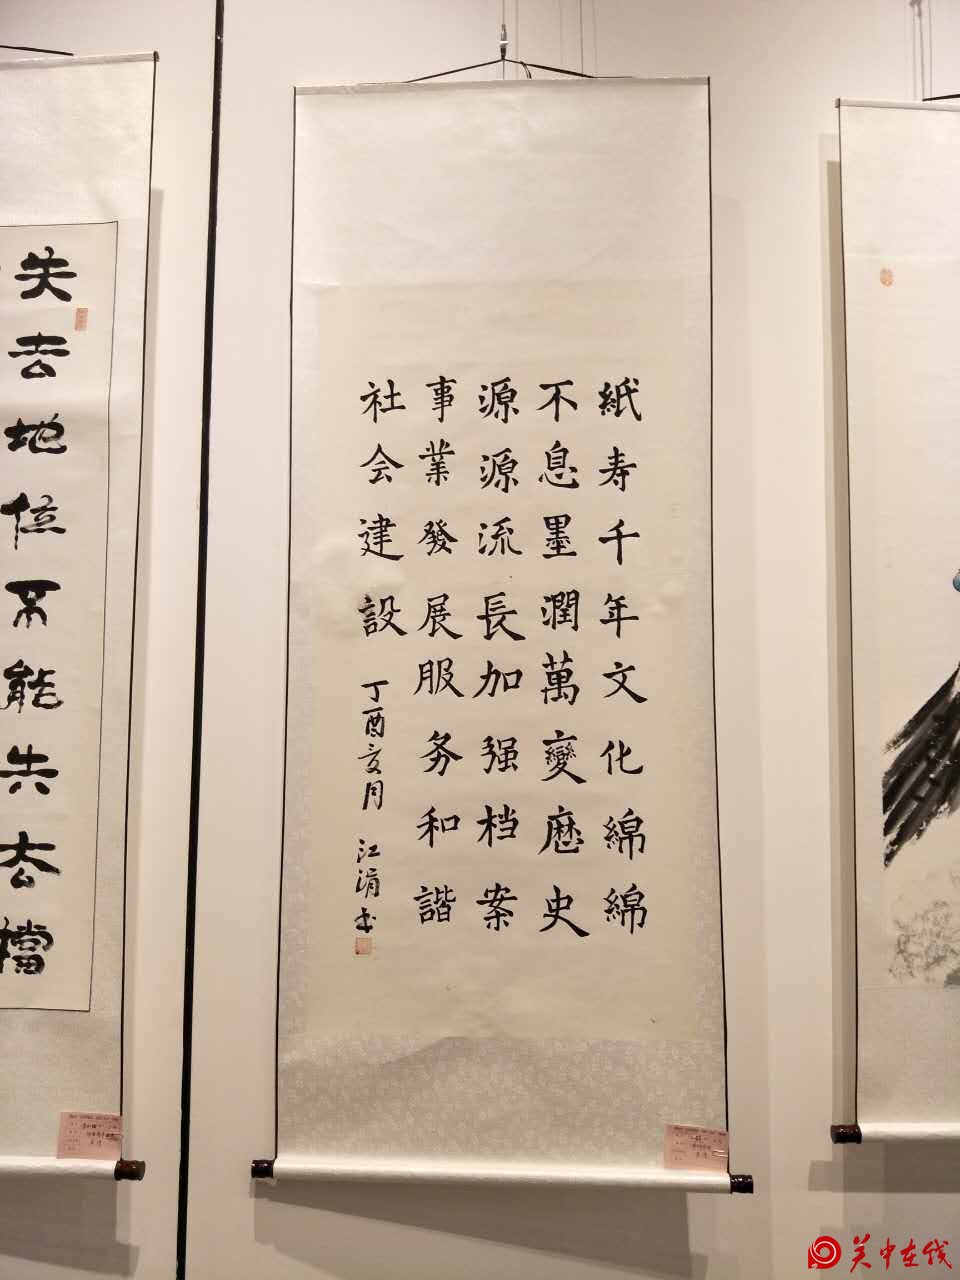 紙寿千年文化綿綿
不息墨潤萬變歷史
源源流長加强档案
事業發展服务和諧
社会建設
丁酉亥月
江涓书
失去地位不能失去檔
关中在线